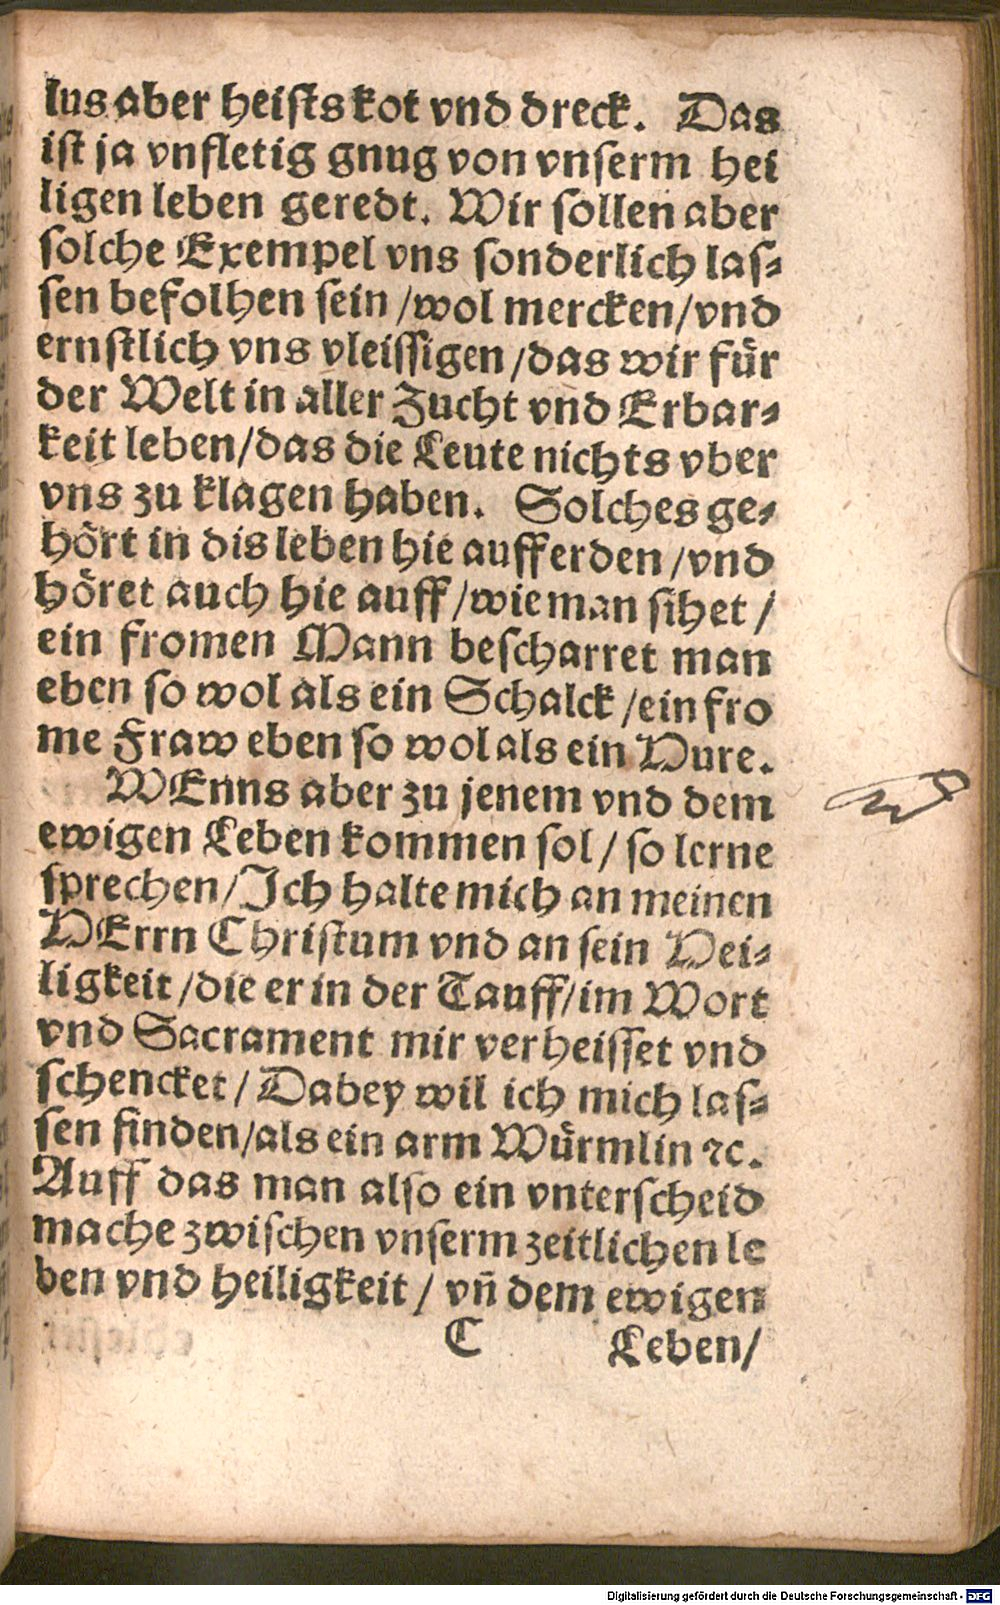 lus aber heists kot vnd dreck. Das
ist ja vnfletig gnug von vnserm hei
ligen leben geredt. Wir sollen aber
solche Exempel vns sonderlich las-
sen befolhen sein / wol mercken / vnd
ernstlich vns vleissigen / das wir für
der Welt in aller Zucht vnd Erbar-
keit leben / das die Leute nichts vber
vns zu klagen haben. Solches ge-
hört in dis leben hie auff erden / vnd
höret auch hie auff / wie man sihet /
ein fromen Mann bescharret man
eben so wol als ein Schalck / ein fro
me Fraw eben so wol als ein Hure.
WEnns aber zu jenem vnd dem
ewigen Leben kommen sol / so lerne
sprechen / Ich halte mich an meinen
HErrn Christum vnd an sein Hei-
ligkeit / die er in der Tauff / im Wort
vnd Sacrament mir verheisset vnd
schencket / Dabey wil ich mich las-
sen finden / als ein arm Würmlin ⁊c.
Auff das man also ein vnterscheid
mache zwischen vnserm zeitlichen le
ben vnd heiligkeit / vn̄ dem ewigen
C Leben /
Digitalisierung gefördert durch die Deutsche Forschungsgemeinschaft - DFG